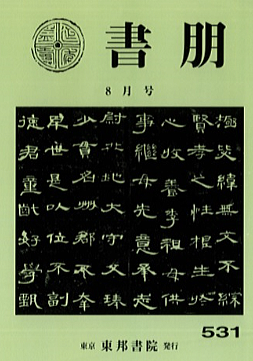 書朋
8月号
極毖緯無文不綜
賢孝之性根生於
心收養季祖母供
事繼母先意承志
尉北地大守父琫
少貫名州郡不幸
早世是以位不副
德君童齔好學甄
531
東京 東邦書院 発行